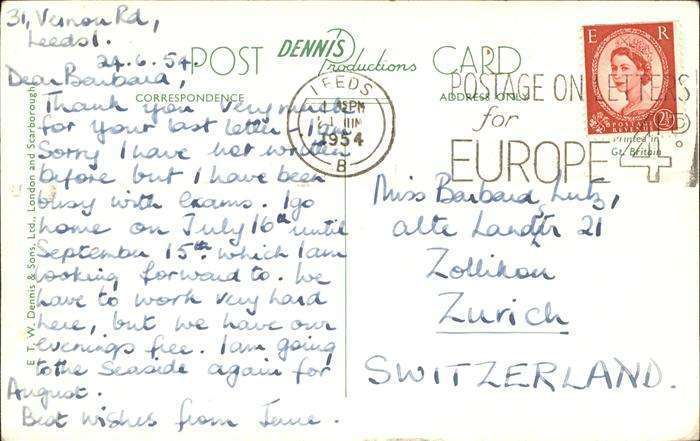 31, Vernon Rd,
Leeds 1.
24.6.54.
Dear Barbara,
Thank you very much
for your last letter. I am
sorry I have not written
before but I have been
busy with exams. I go
home on July 16th until
September 15th. which I am
looking forward to. We
have to work very hard
here, but we have our
evenings free. I am going
to the Seaside again for
August.
Best wishes from Jane.
POST DENNIS Productions CARD
CORRESPONDENCE
ADDRESS ONLY
E. T. W. Dennis & Sons, Ltd., London and Scarborough
LEEDS
PM
JUN
1954
B
POSTAGE ON LETTERS
for
EUROPE 4D.
E R
POSTAGE
REVENUE
2½D
Printed in
Gt. Britain
Miss Barbara Lutz,
alte Landstr 21
Zollikon
Zurich
SWITZERLAND.